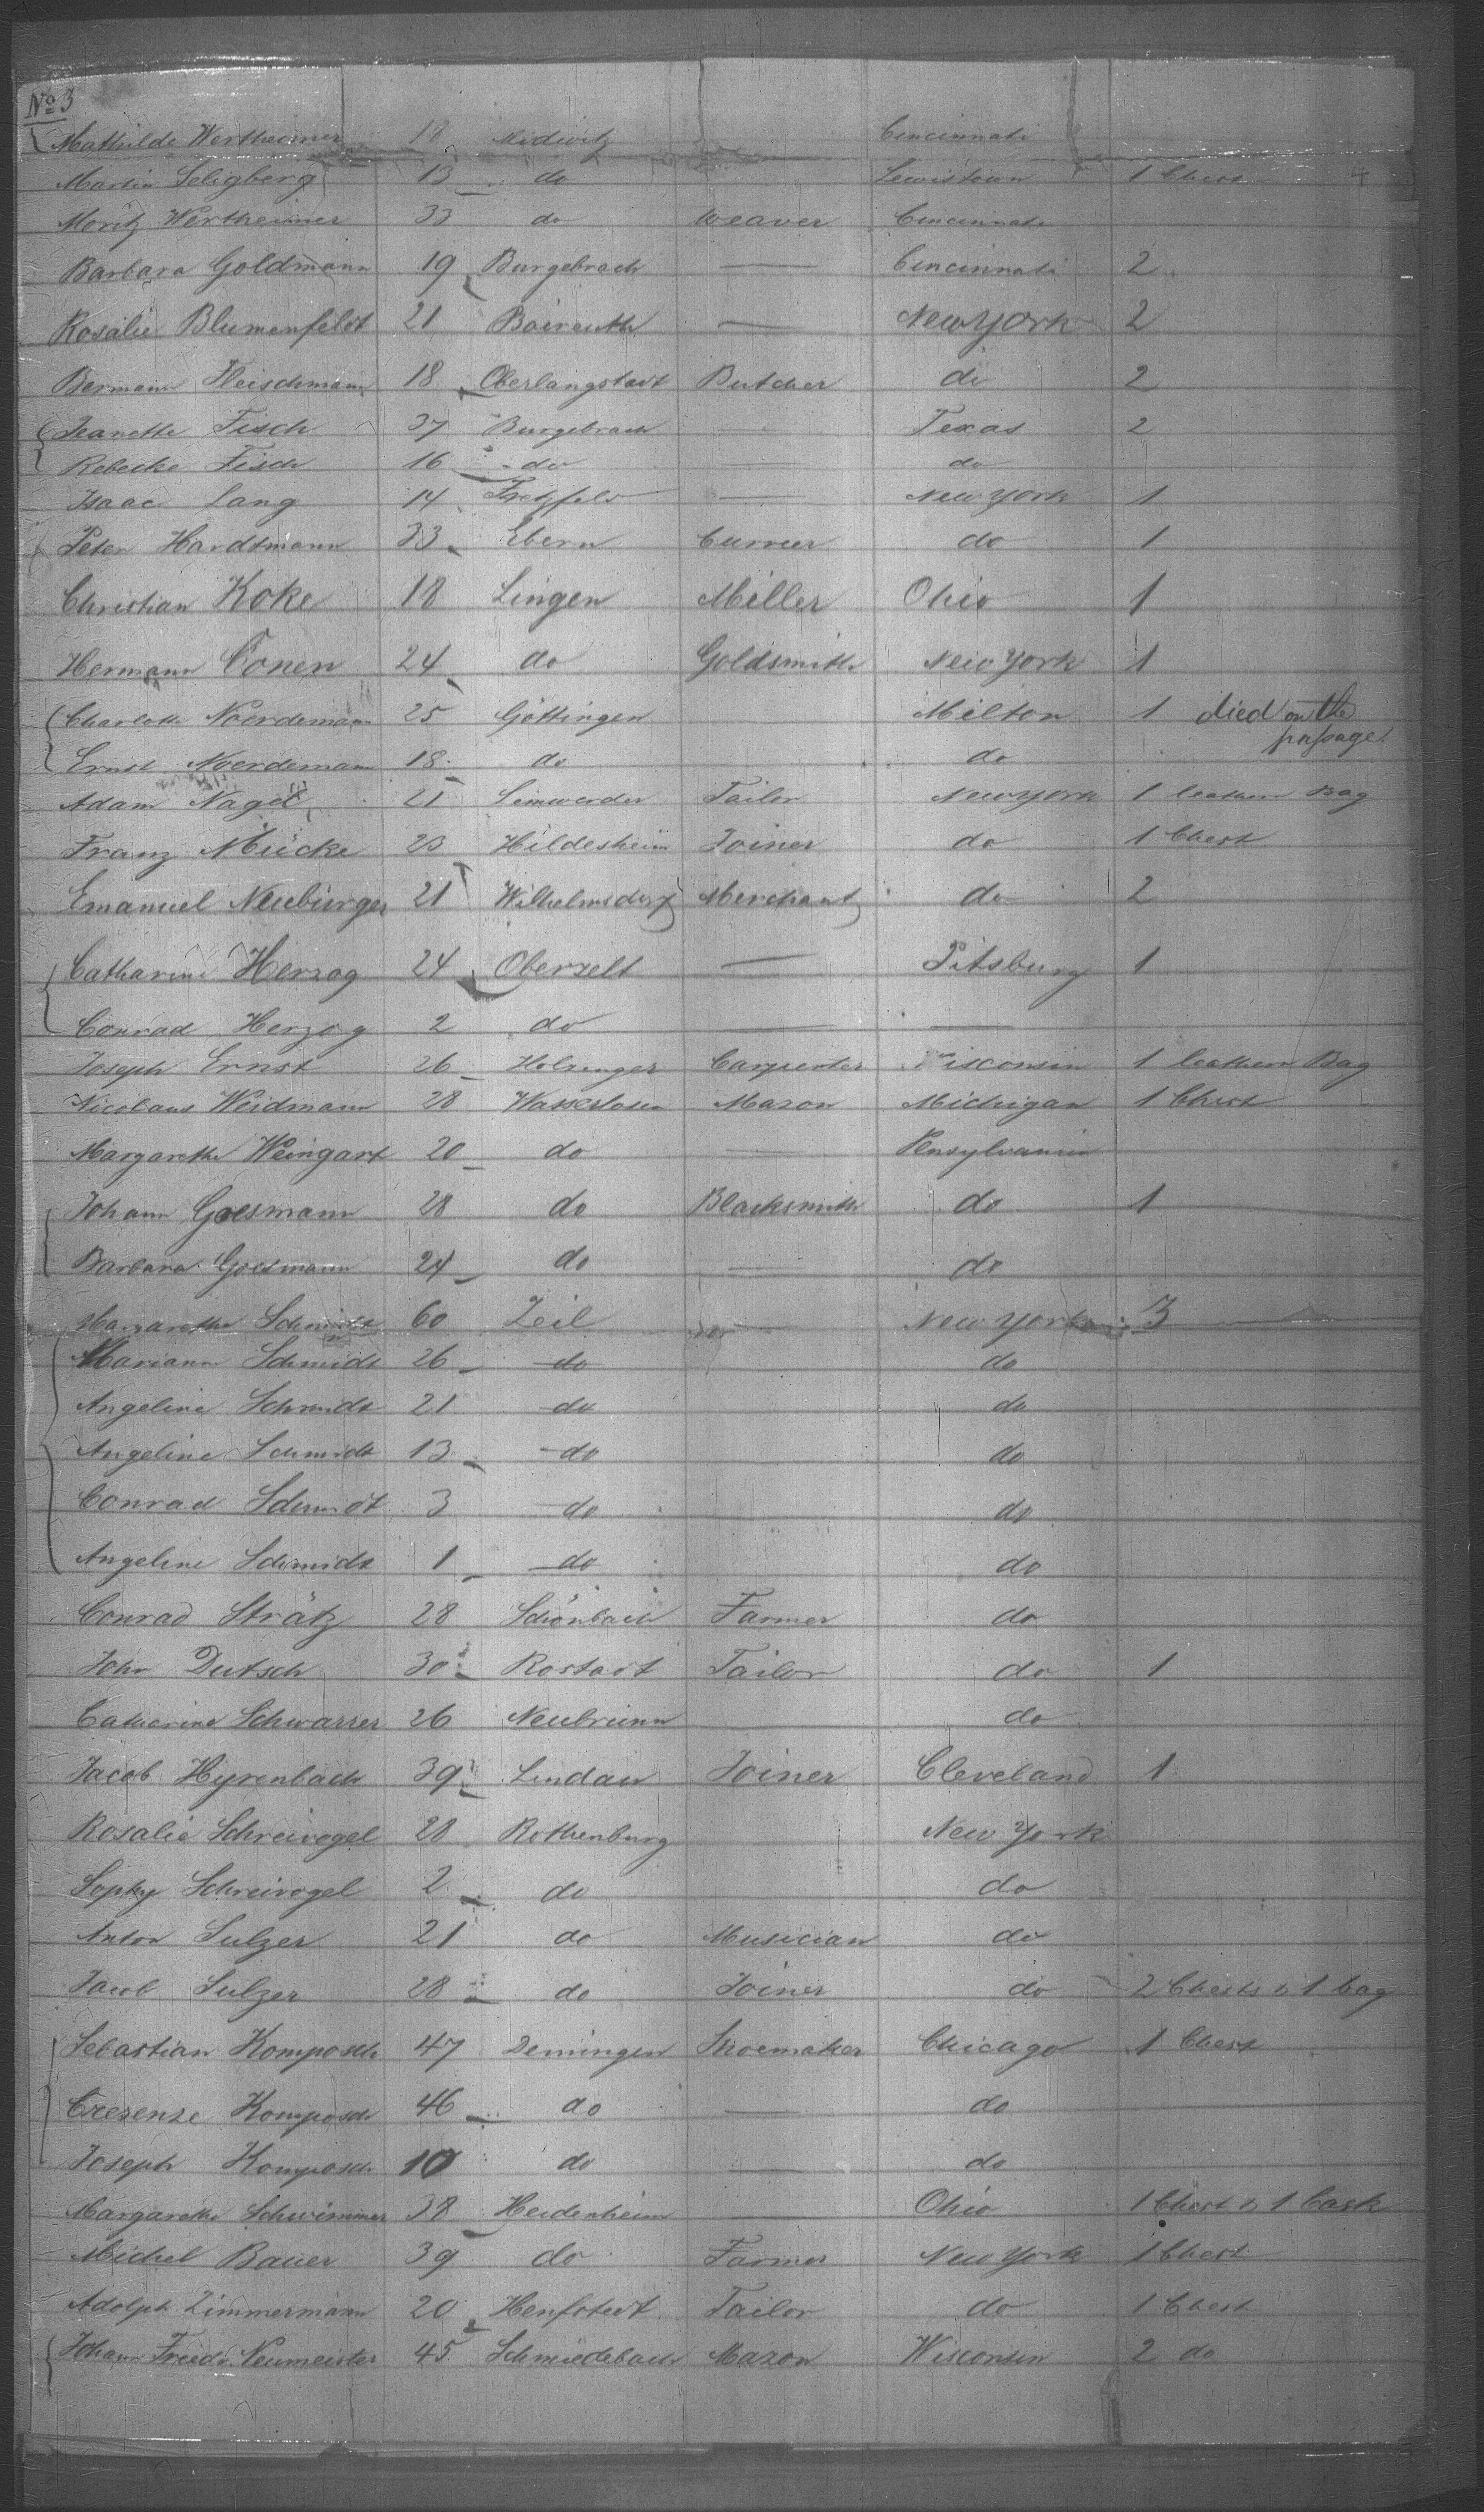 No 3
Mathilde Wertheimer 18 Midwitz Cincinnati
Martin Seligberg 13 do Lewistown 1 Chest 4
Moritz Wertheimer 33 do Weaver Cincinnati
Barbara Goldmann 19 Burgebrach — Cincinnati 2
Rosalie Blumenfeldt 21 Boireuth — New York 2
Bermann Fleischmann 18 Oberlangstadt Butcher do 2
Jeanette Fisch 37 Burgebrach — Texas 2
Rebecke Fisch 16 do — do
Isaac Lang 14 Fretzfeld — New York 1
Peter Hardtmann 33 Ebern Currier do 1
Christian Koke 18 Lingen Miller Ohio 1
Hermann Conen 24 do Goldsmith New York 1
Charlotte Noerdemann 25 Göttingen Milton 1 died on the
passage.
Ernst Noerdemann 18 do do
Adam Nagel 21 Limwerder Tailor New York 1 leathern Bag
Franz Mücke 23 Hildesheim Joiner do 1 Chest
Emanuel Neubürger 21 Wilhelmsdorf Merchant do 2
Catharine Herzog 24 Oberzelt — Pitsburg 1
Conrad Herzog 2 do — —
Joseph Ernst 26 Holzinger Carpenter Wisconsin 1 leathern Bag
Nicolaus Weidmann 28 Wasserlosen Mason Michigan 1 Chest
Margarethe Weingart 20 do — Pensylvanien
Johann Goesmann 28 do Blacksmith do 1
Barbara Goesmann 24 do — do
Margarethe Schmidt 60 Zeil — New York 3
Mariann Schmidt 26 do do
Angeline Schmidt 21 do do
Angeline Schmidt 13 do do
Conrad Schmidt 3 do do
Angeline Schmidt 1 do do
Conrad Strätz 28 Schönbach Farmer do
John Dutsch 30 Rastadt Tailor do 1
Catharine Schwarzer 26 Neubrunn do
Jacob Hyrenbach 39 Lindau Joiner Cleveland 1
Rosalie Schreivogel 28 Rothenburg New York
Sophy Schreivogel 2 do do
Anton Sulzer 21 do Musician do
Jacob Sulzer 28 do Joiner do 2 Chests & 1 bag
Sebastian Komposch 47 Demingen Shoemaker Chicago 1 Chest
Crezenze Komposch 46 do — do
Joseph Komposch 10 do — do
Margarethe Schwimmer 38 Heidenheim — Ohio 1 Chest & 1 Cask
Michel Bauer 39 do Farmer New York 1 Chest
Adolph Zimmermann 20 Henfstedt Tailor do 1 Chest
Johann Friedr. Neumeister 45 Schmiedebach Mason Wisconsin 2 do